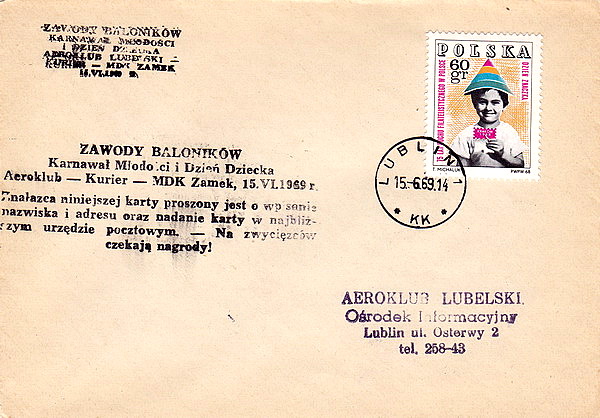 ZAWODY BALONIKÓW
KARNAWAŁ MŁODOŚCI
I DZIEŃ DZIECKA
AEROKLUB LUBELSKI —
KURIER — MDK ZAMEK
15.VI.1969 r.
POLSKA
60 gr
15 LAT RUCHU FILATELISTYCZNEGO W POLSCE
DZIEŃ ZNACZKA
T. MICHALUK
PWPW 68
LUBLIN 1
15.-6.69.14
* KK *
ZAWODY BALONIKÓW
Karnawał Młodości i Dzień Dziecka
Aeroklub — Kurier — MDK Zamek, 15.VI.1969 r.
Znalazca niniejszej karty proszony jest o wpisanie
nazwiska i adresu oraz nadanie karty w najbliż-
szym urzędzie pocztowym. — Na zwycięzców
czekają nagrody!
AEROKLUB LUBELSKI
Ośrodek Informacyjny
Lublin ul. Osterwy 2
tel. 258-43